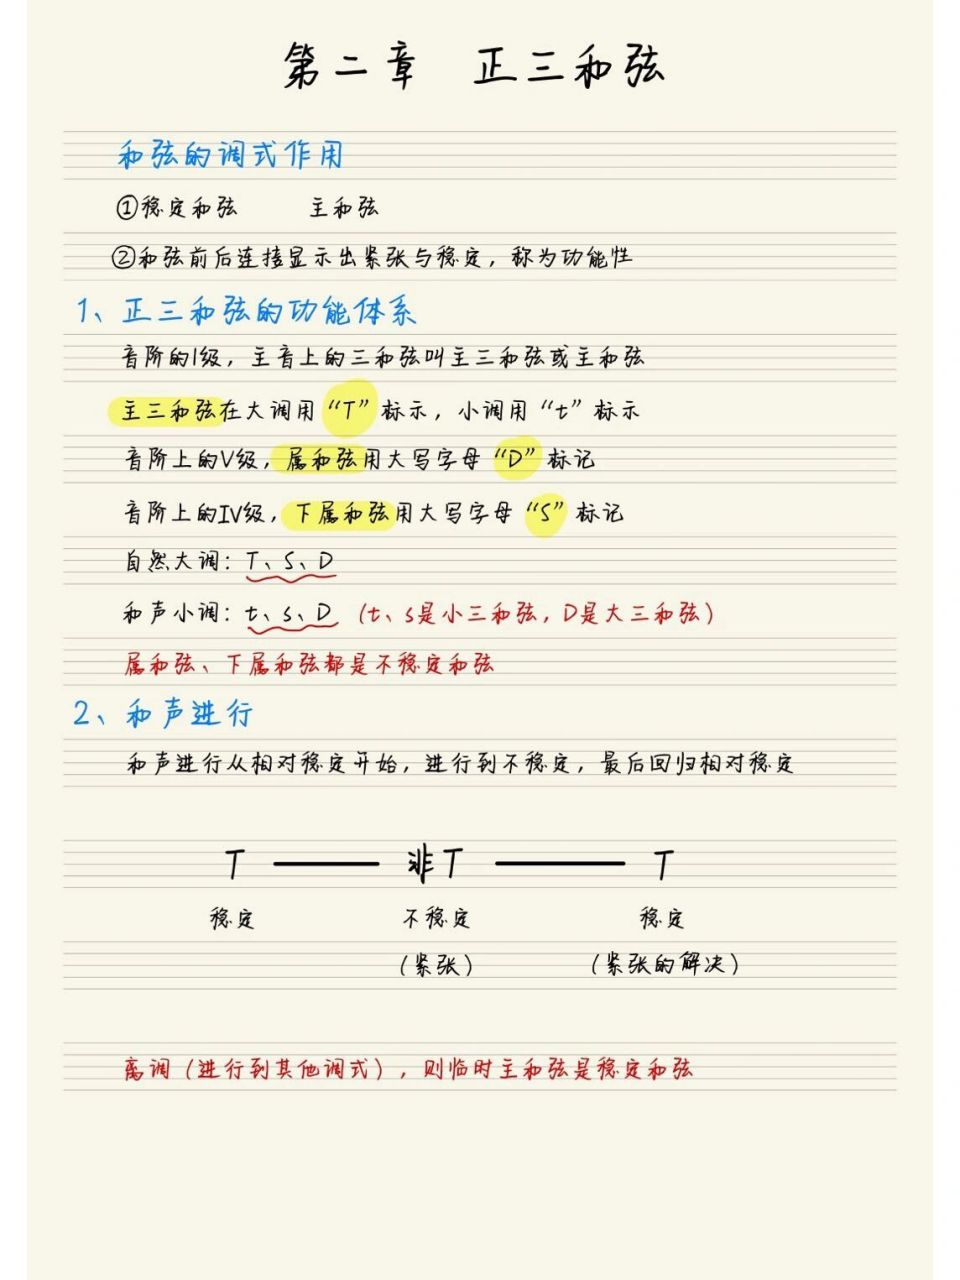 第二章 正三和弦
和弦的调式作用
①稳定和弦 主和弦
②和弦前后连接显示出紧张与稳定，称为功能性
1、正三和弦的功能体系
音阶的I级，主音上的三和弦叫主三和弦或主和弦
主三和弦在大调用“T”标示，小调用“t”标示
音阶上的V级，属和弦用大写字母“D”标记
音阶上的IV级，下属和弦用大写字母“S”标记
自然大调：T、S、D
和声小调：t、s、D（t、s是小三和弦，D是大三和弦）
属和弦、下属和弦都是不稳定和弦
2、和声进行
和声进行从相对稳定开始，进行到不稳定，最后回归相对稳定
T —— 非T —— T
稳定 不稳定 稳定
（紧张） （紧张的解决）
离调（进行到其他调式），则临时主和弦是稳定和弦